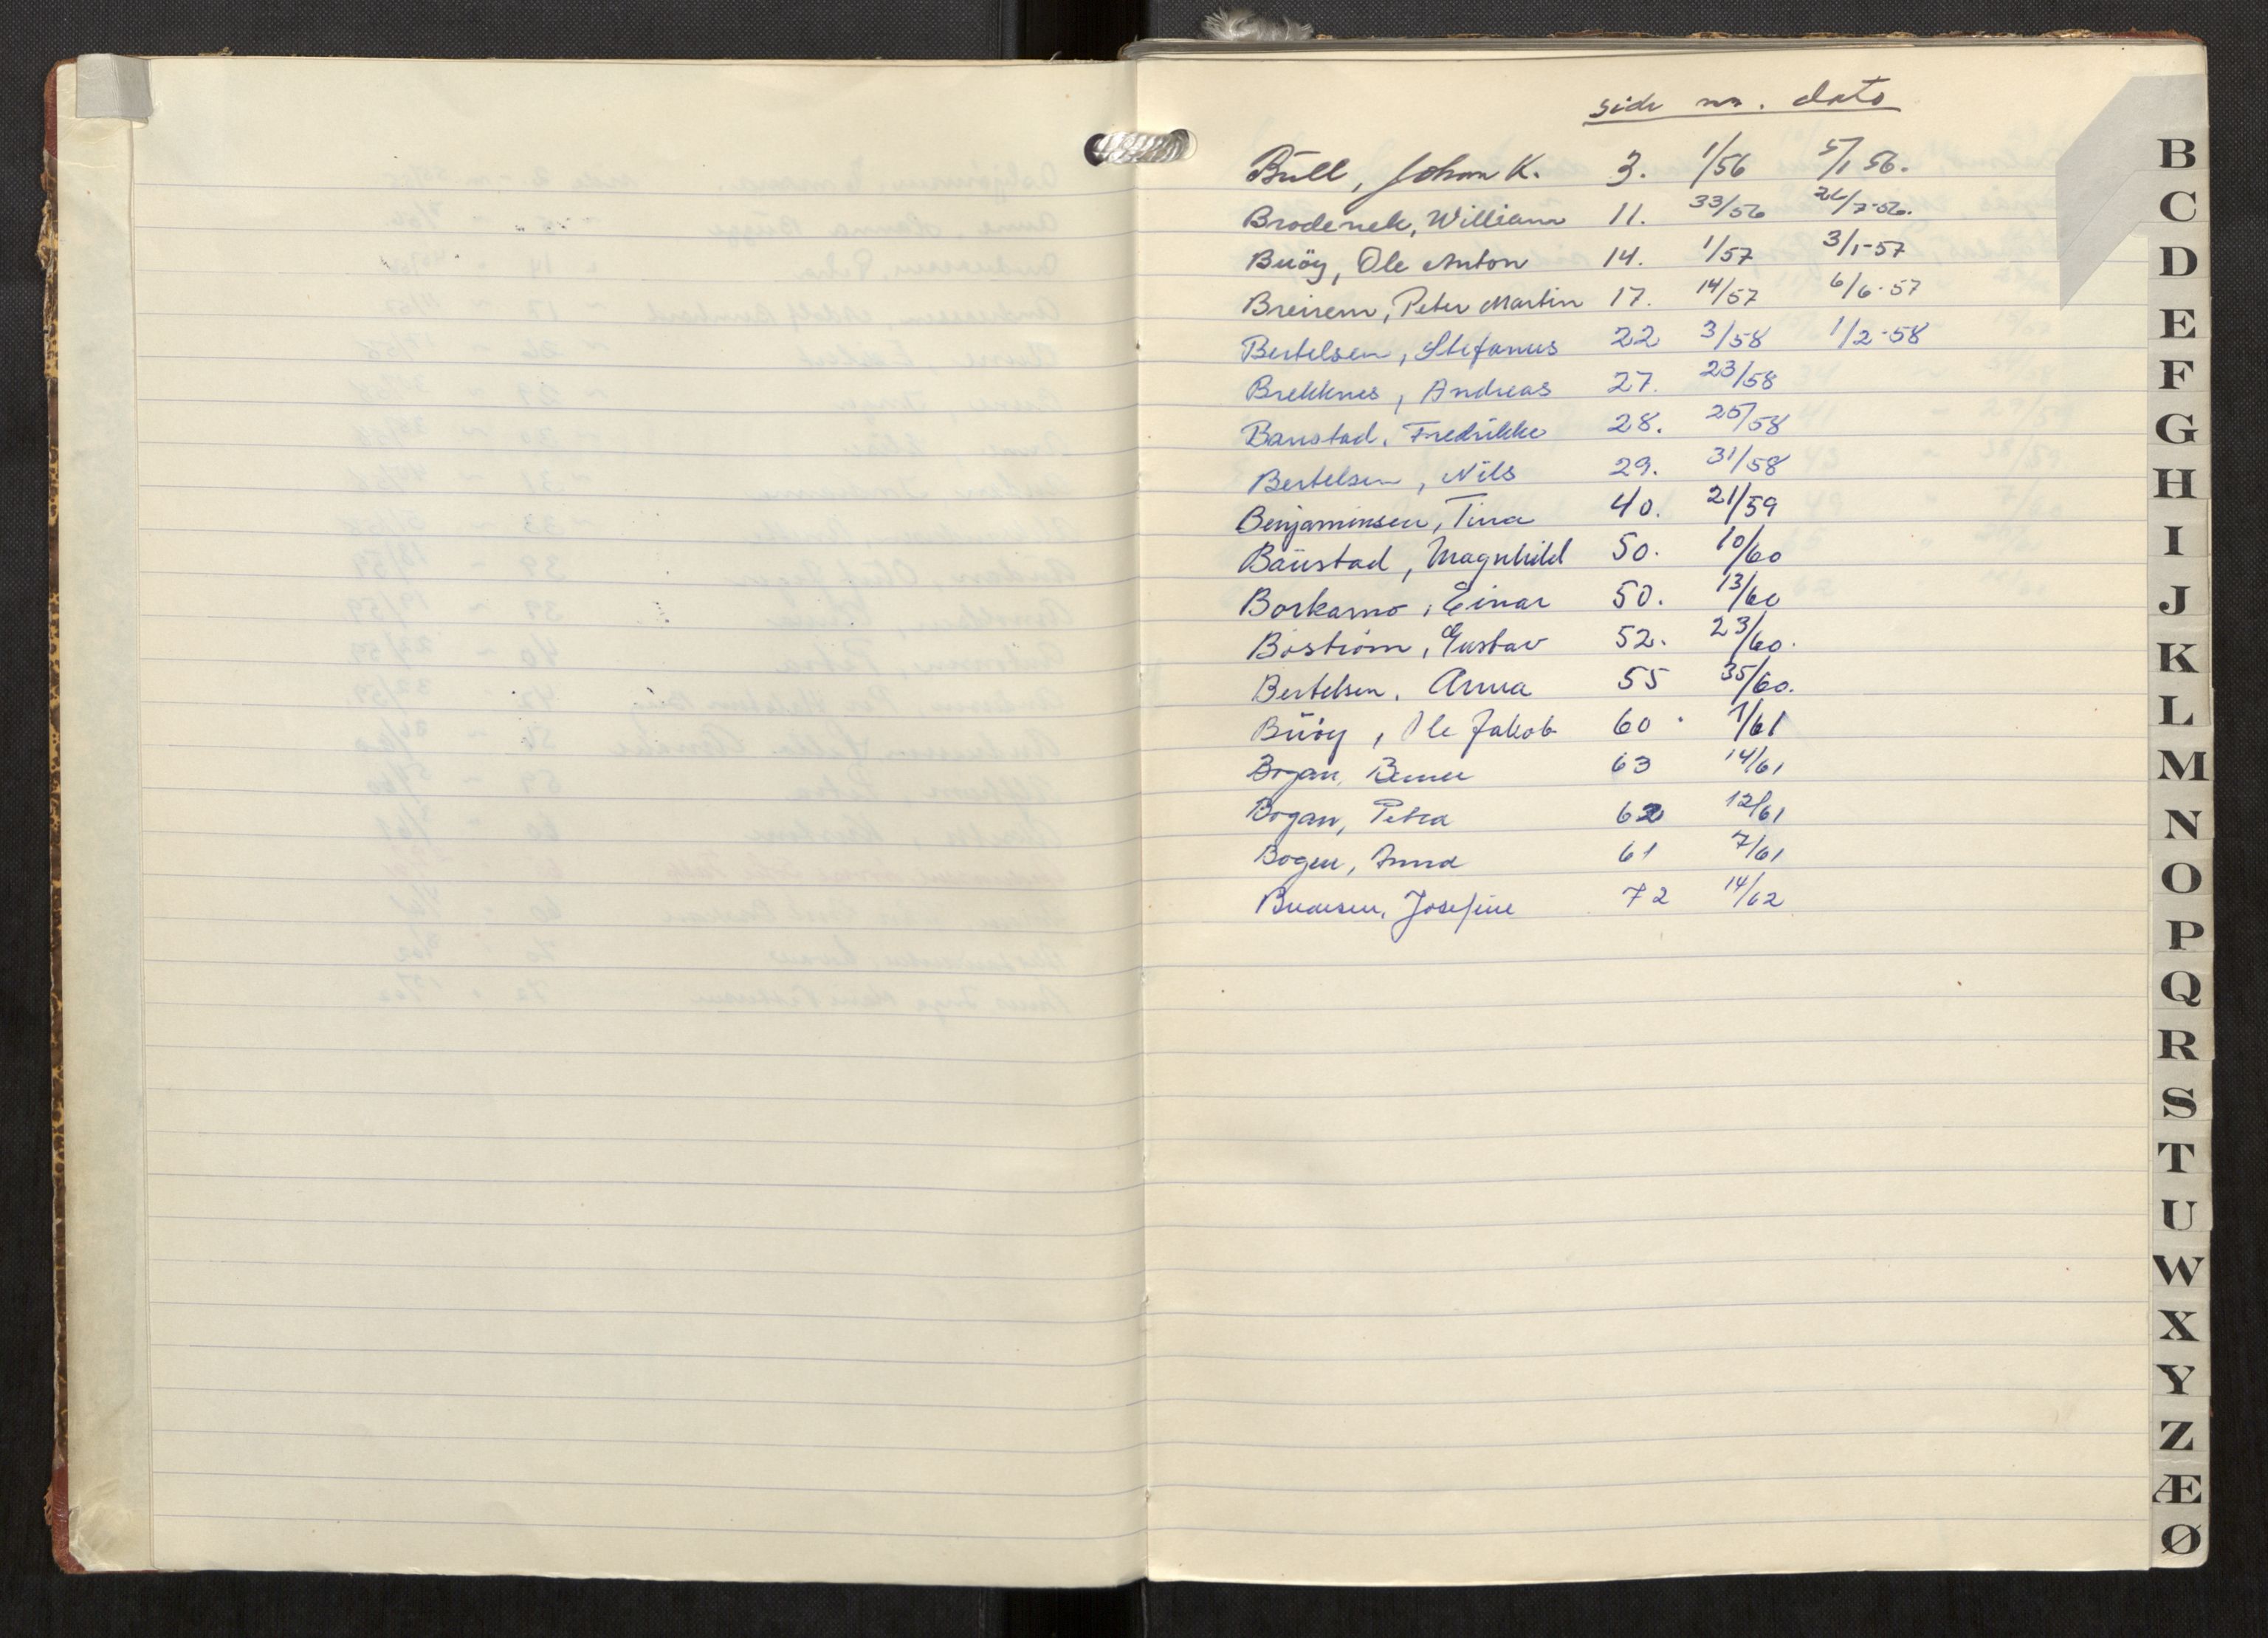 side nr. dato
Bull, Johan K. 3. 1/56 5/1 56.
Broderiek, William 11. 33/56 26/7-56.
Buöy, Ole Anton 14. 1/57 3/1-57
Breirem, Peter Martin 17. 14/57 6/6-57
Bertelsen, Stefanus 22 3/58 1/2-58
Brekknes, Andreas 27. 23/58
Baustad, Fredrikke 28. 25/58
Bertelsen, Nils 29. 31/58
Benjaminsen, Tina 40. 21/59
Baustad, Magnhild 50. 10/60
Borkamo, Einar 50. 13/60
Boström, Gustav 52. 23/60.
Bertelsen, Anna 55 35/60.
Buöy, Ole Jakob 60. 1/61
Bogan, 63 14/61
Bogan, Petra 62 12/61
Bogen, Anna 61 7/61
Josefine 72 14/62
B
C
D
E
F
G
H
I
J
K
L
M
N
O
P
Q
R
S
T
U
W
X
Y
Z
Æ
Ø